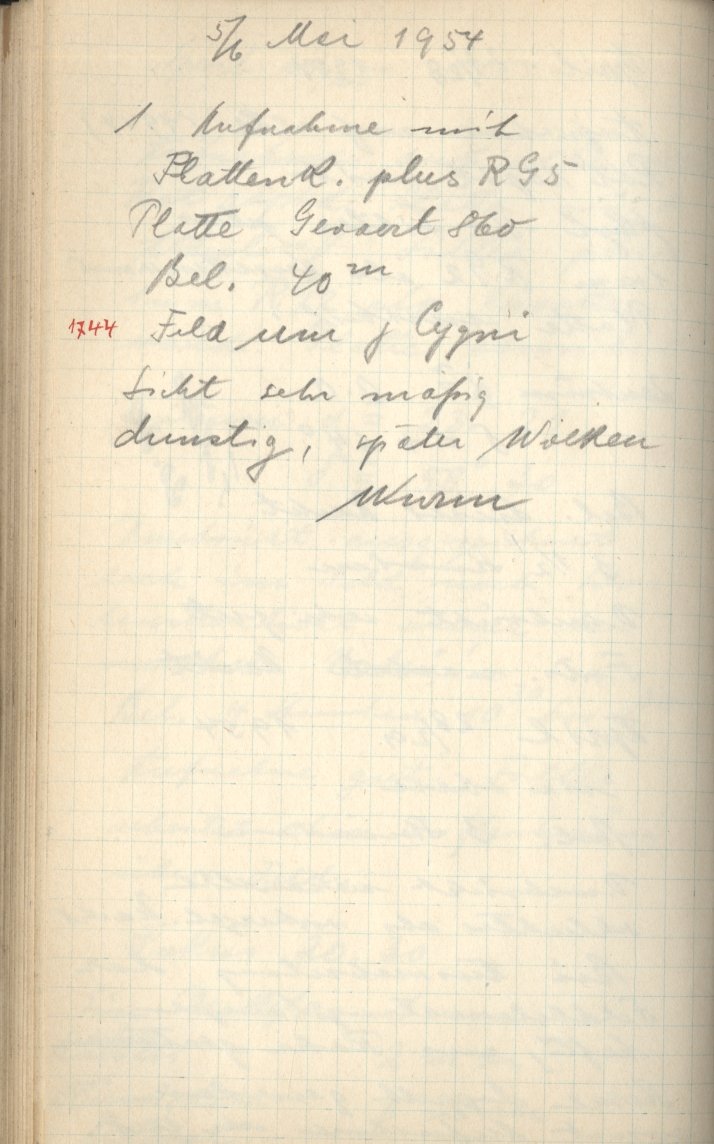 5/6 Mai 1954
1. Aufnahme mit
PlattenK. plus RG5
Platte Gevaert 860
Bel. 40 m
1744 Feld um γ Cygni
Sicht sehr mäßig
dunstig, später Wolken
Wurm